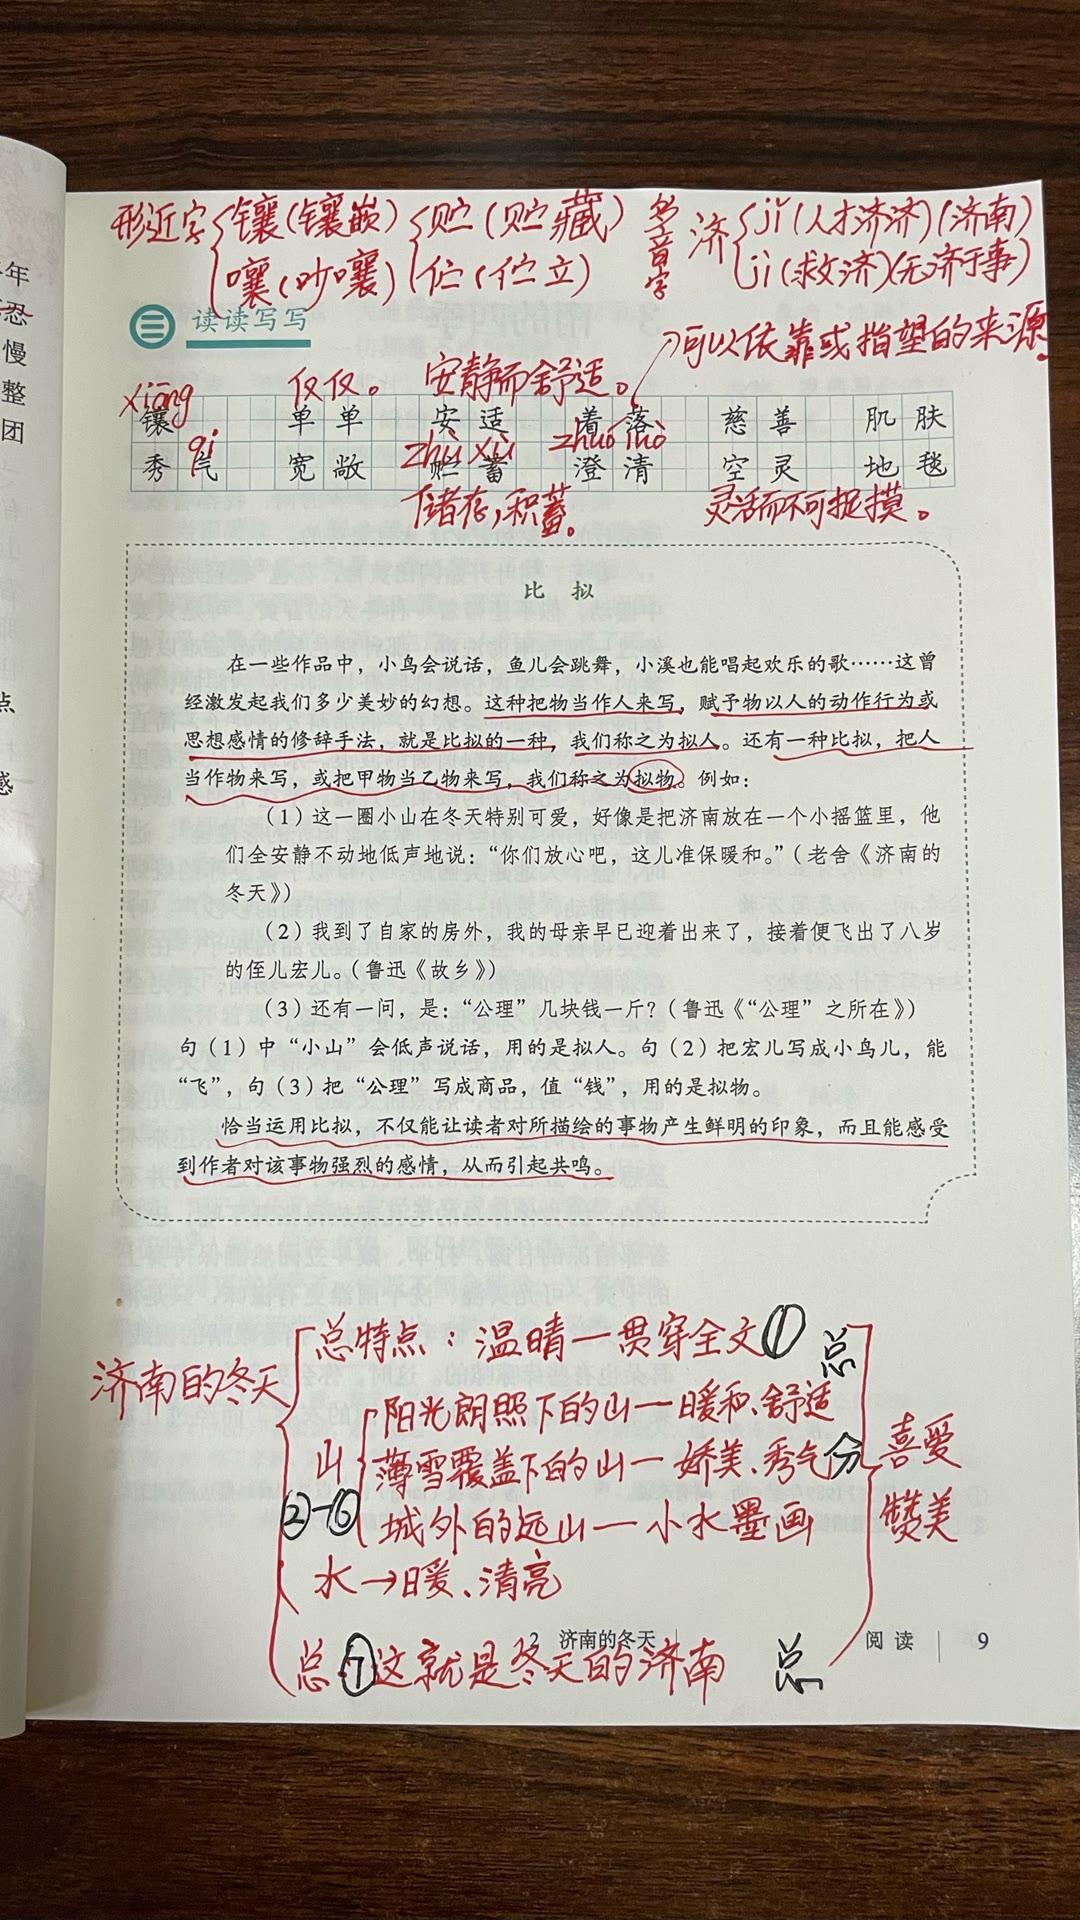 形近字 镶(镶嵌) 贮(贮藏) 多音字 济 jǐ(人才济济)(济南)
嚷(吵嚷) 伫(伫立) jì(救济)(无济于事)
三 读读写写
可以依靠或指望的来源。
xiāng 仅仅。 安静而舒适。
镶 单单 安适 着落 慈善 肌肤
qi zhù xù zhuó luò
秀气 宽敞 贮蓄 澄清 空灵 地毯
储存,积蓄。 灵活而不可捉摸。
年
忍
慢
整
团
点
感
比 拟
在一些作品中，小鸟会说话，鱼儿会跳舞，小溪也能唱起欢乐的歌……这曾
经激发起我们多少美妙的幻想。这种把物当作人来写，赋予物以人的动作行为或
思想感情的修辞手法，就是比拟的一种，我们称之为拟人。还有一种比拟，把人
当作物来写，或把甲物当乙物来写，我们称之为拟物。例如：
（1）这一圈小山在冬天特别可爱，好像是把济南放在一个小摇篮里，他
们全安静不动地低声地说：“你们放心吧，这儿准保暖和。”（老舍《济南的
冬天》）
（2）我到了自家的房外，我的母亲早已迎着出来了，接着便飞出了八岁
的侄儿宏儿。（鲁迅《故乡》）
（3）还有一问，是：“公理”几块钱一斤？（鲁迅《“公理”之所在》）
句（1）中“小山”会低声说话，用的是拟人。句（2）把宏儿写成小鸟儿，能
“飞”，句（3）把“公理”写成商品，值“钱”，用的是拟物。
恰当运用比拟，不仅能让读者对所描绘的事物产生鲜明的印象，而且能感受
到作者对该事物强烈的感情，从而引起共鸣。
济南的冬天 总特点：温晴—贯穿全文① 总
阳光朗照下的山—暖和、舒适
山 薄雪覆盖下的山—娇美、秀气 分 喜爱
②-⑥ 城外的远山—小水墨画 赞美
水→暖、清亮
总 ⑦这就是冬天的济南 总
2 济南的冬天 阅读 9